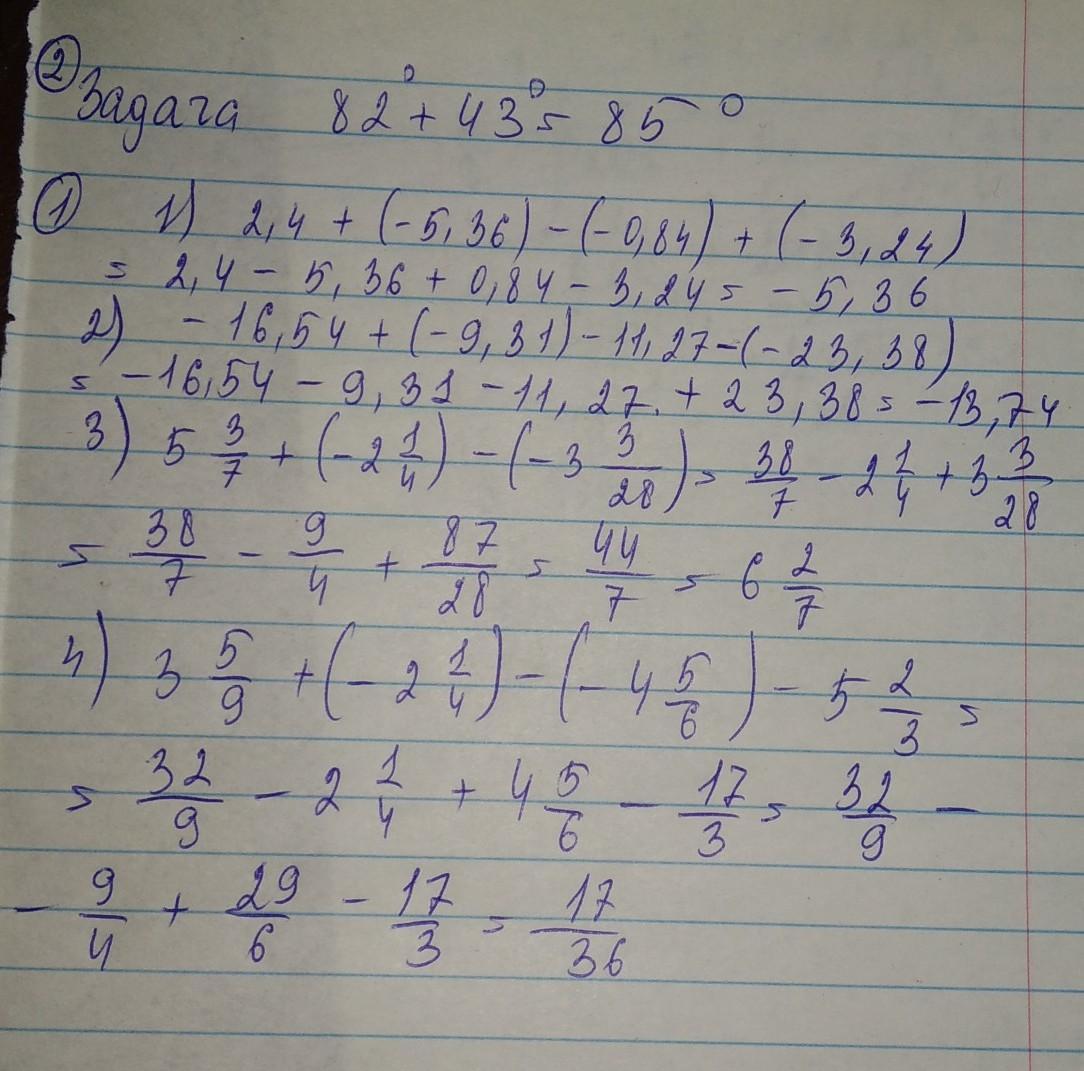 ② Задача 82° + 43° = 85°
① 1) 2,4 + (-5,36) - (-0,84) + (-3,24)
= 2,4 - 5,36 + 0,84 - 3,24 = -5,36
2) -16,54 + (-9,31) - 11,27 - (-23,38)
= -16,54 - 9,31 - 11,27 + 23,38 = -13,74
3) 5 3/7 + (-2 1/4) - (-3 3/28) = 38/7 - 2 1/4 + 3 3/28
= 38/7 - 9/4 + 87/28 = 44/7 = 6 2/7
4) 3 5/9 + (-2 1/4) - (-4 5/6) - 5 2/3 =
= 32/9 - 2 1/4 + 4 5/6 - 17/3 = 32/9 -
- 9/4 + 29/6 - 17/3 = 17/36